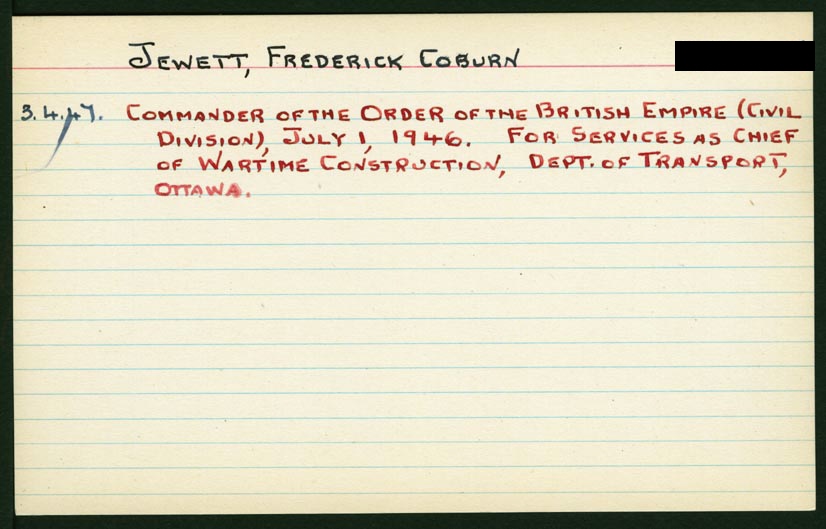 JEWETT, FREDERICK COBURN
3.4.47. COMMANDER OF THE ORDER OF THE BRITISH EMPIRE (CIVIL
DIVISION), JULY 1, 1946. FOR SERVICES AS CHIEF
OF WARTIME CONSTRUCTION, DEPT. OF TRANSPORT,
OTTAWA.